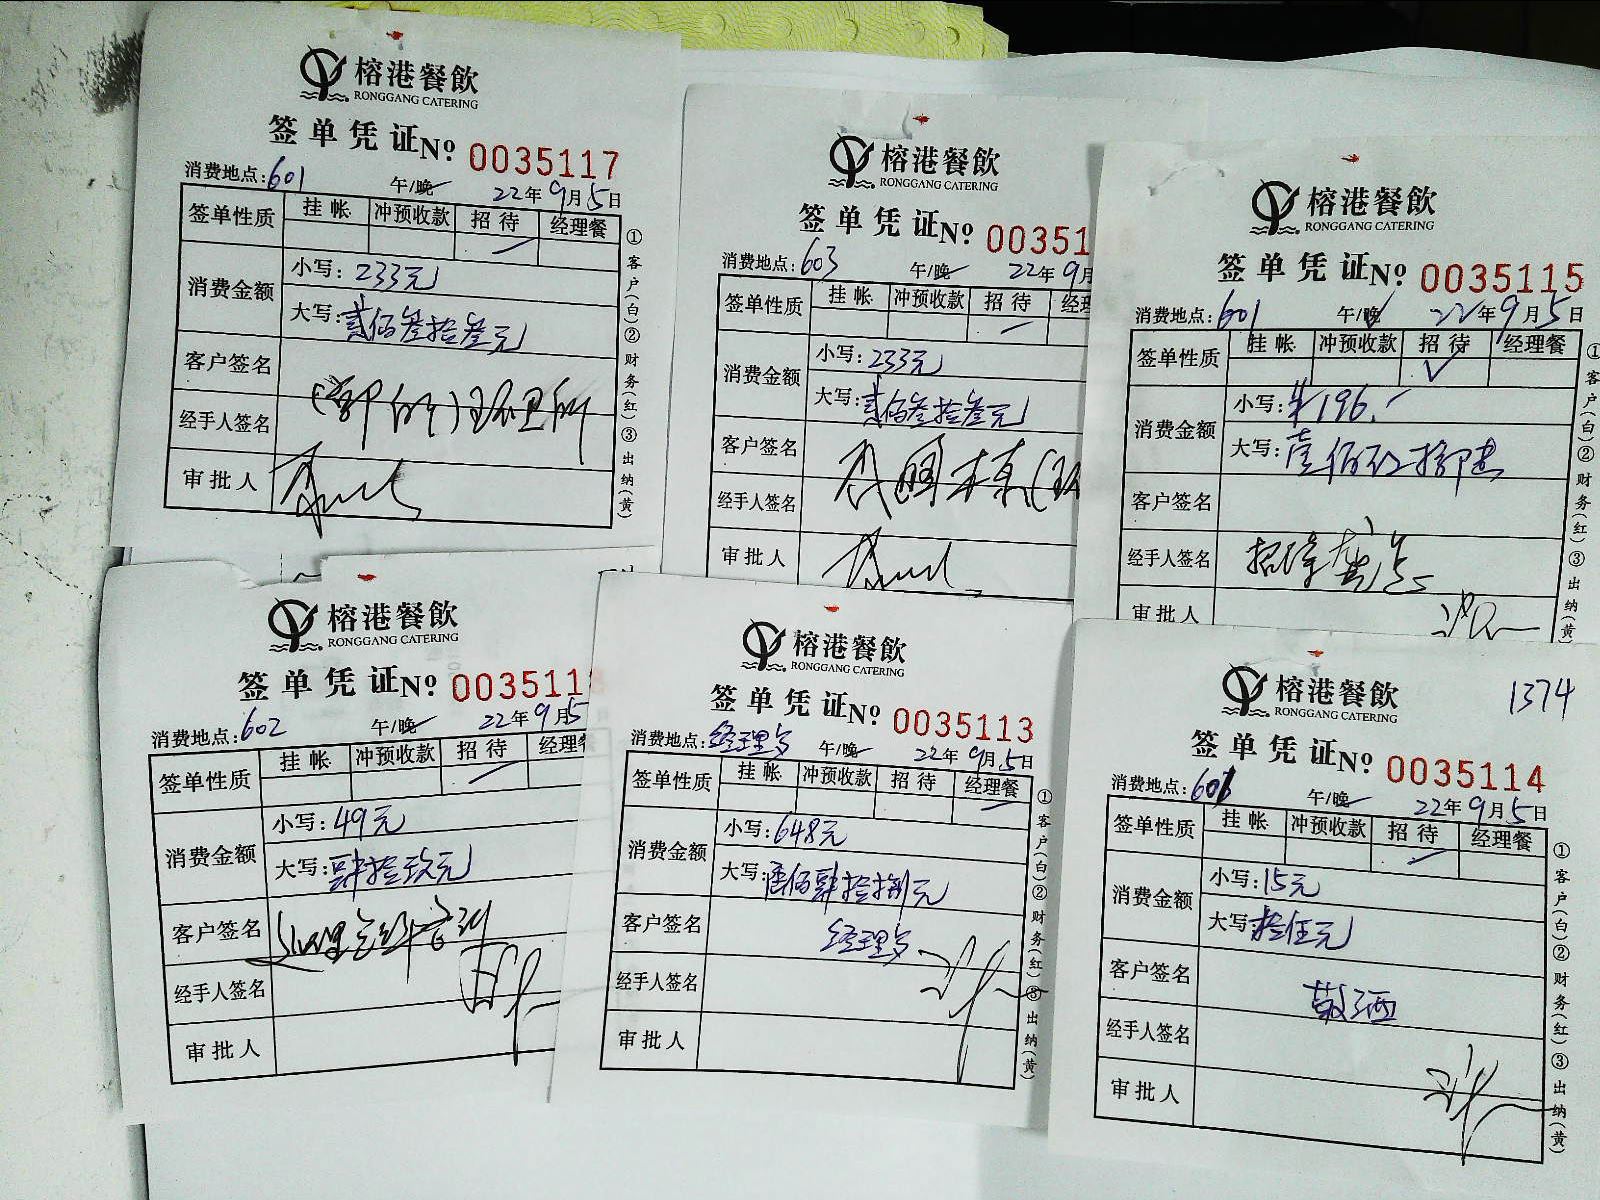 榕港餐飲
RONGGANG CATERING
签单凭证№ 0035117
消费地点:601 午/晚 22年9月5日
签单性质 挂帐 冲预收款 招待 经理餐
消费金额 小写:233元
大写:贰佰叁拾叁元
客户签名
经手人签名
审批人
①客户(白)②财务(红)③出纳(黄)
榕港餐飲
RONGGANG CATERING
签单凭证№ 00351
消费地点:603 午/晚 22年9月
签单性质 挂帐 冲预收款 招待 经理
消费金额 小写:233元
大写:贰佰叁拾叁元
客户签名
经手人签名
审批人
榕港餐飲
RONGGANG CATERING
签单凭证№ 0035115
消费地点:601 午/晚 22年9月5日
签单性质 挂帐 冲预收款 招待 经理餐
消费金额 小写:¥196.
大写:壹佰玖拾陆
客户签名
经手人签名 招待
审批人
①客户(白)②财务(红)③出纳(黄
榕港餐飲
RONGGANG CATERING
签单凭证№ 0035118
消费地点:602 午/晚 22年9月5
签单性质 挂帐 冲预收款 招待 经理餐
消费金额 小写:49元
大写:肆拾玖元
客户签名
经手人签名
审批人
榕港餐飲
RONGGANG CATERING
签单凭证№ 0035113
消费地点:经理室 午/晚 22年9月5日
签单性质 挂帐 冲预收款 招待 经理餐
消费金额 小写:648元
大写:陆佰肆拾捌元
客户签名 经理室
经手人签名
审批人
①客户(白)②财务(红)③出纳(黄)
榕港餐飲
RONGGANG CATERING
1374
签单凭证№ 0035114
消费地点:601 午/晚 22年9月5日
签单性质 挂帐 冲预收款 招待 经理餐
消费金额 小写:15元
大写:拾伍元
客户签名 敬酒
经手人签名
审批人
①客户(白)②财务(红)③出纳(黄)